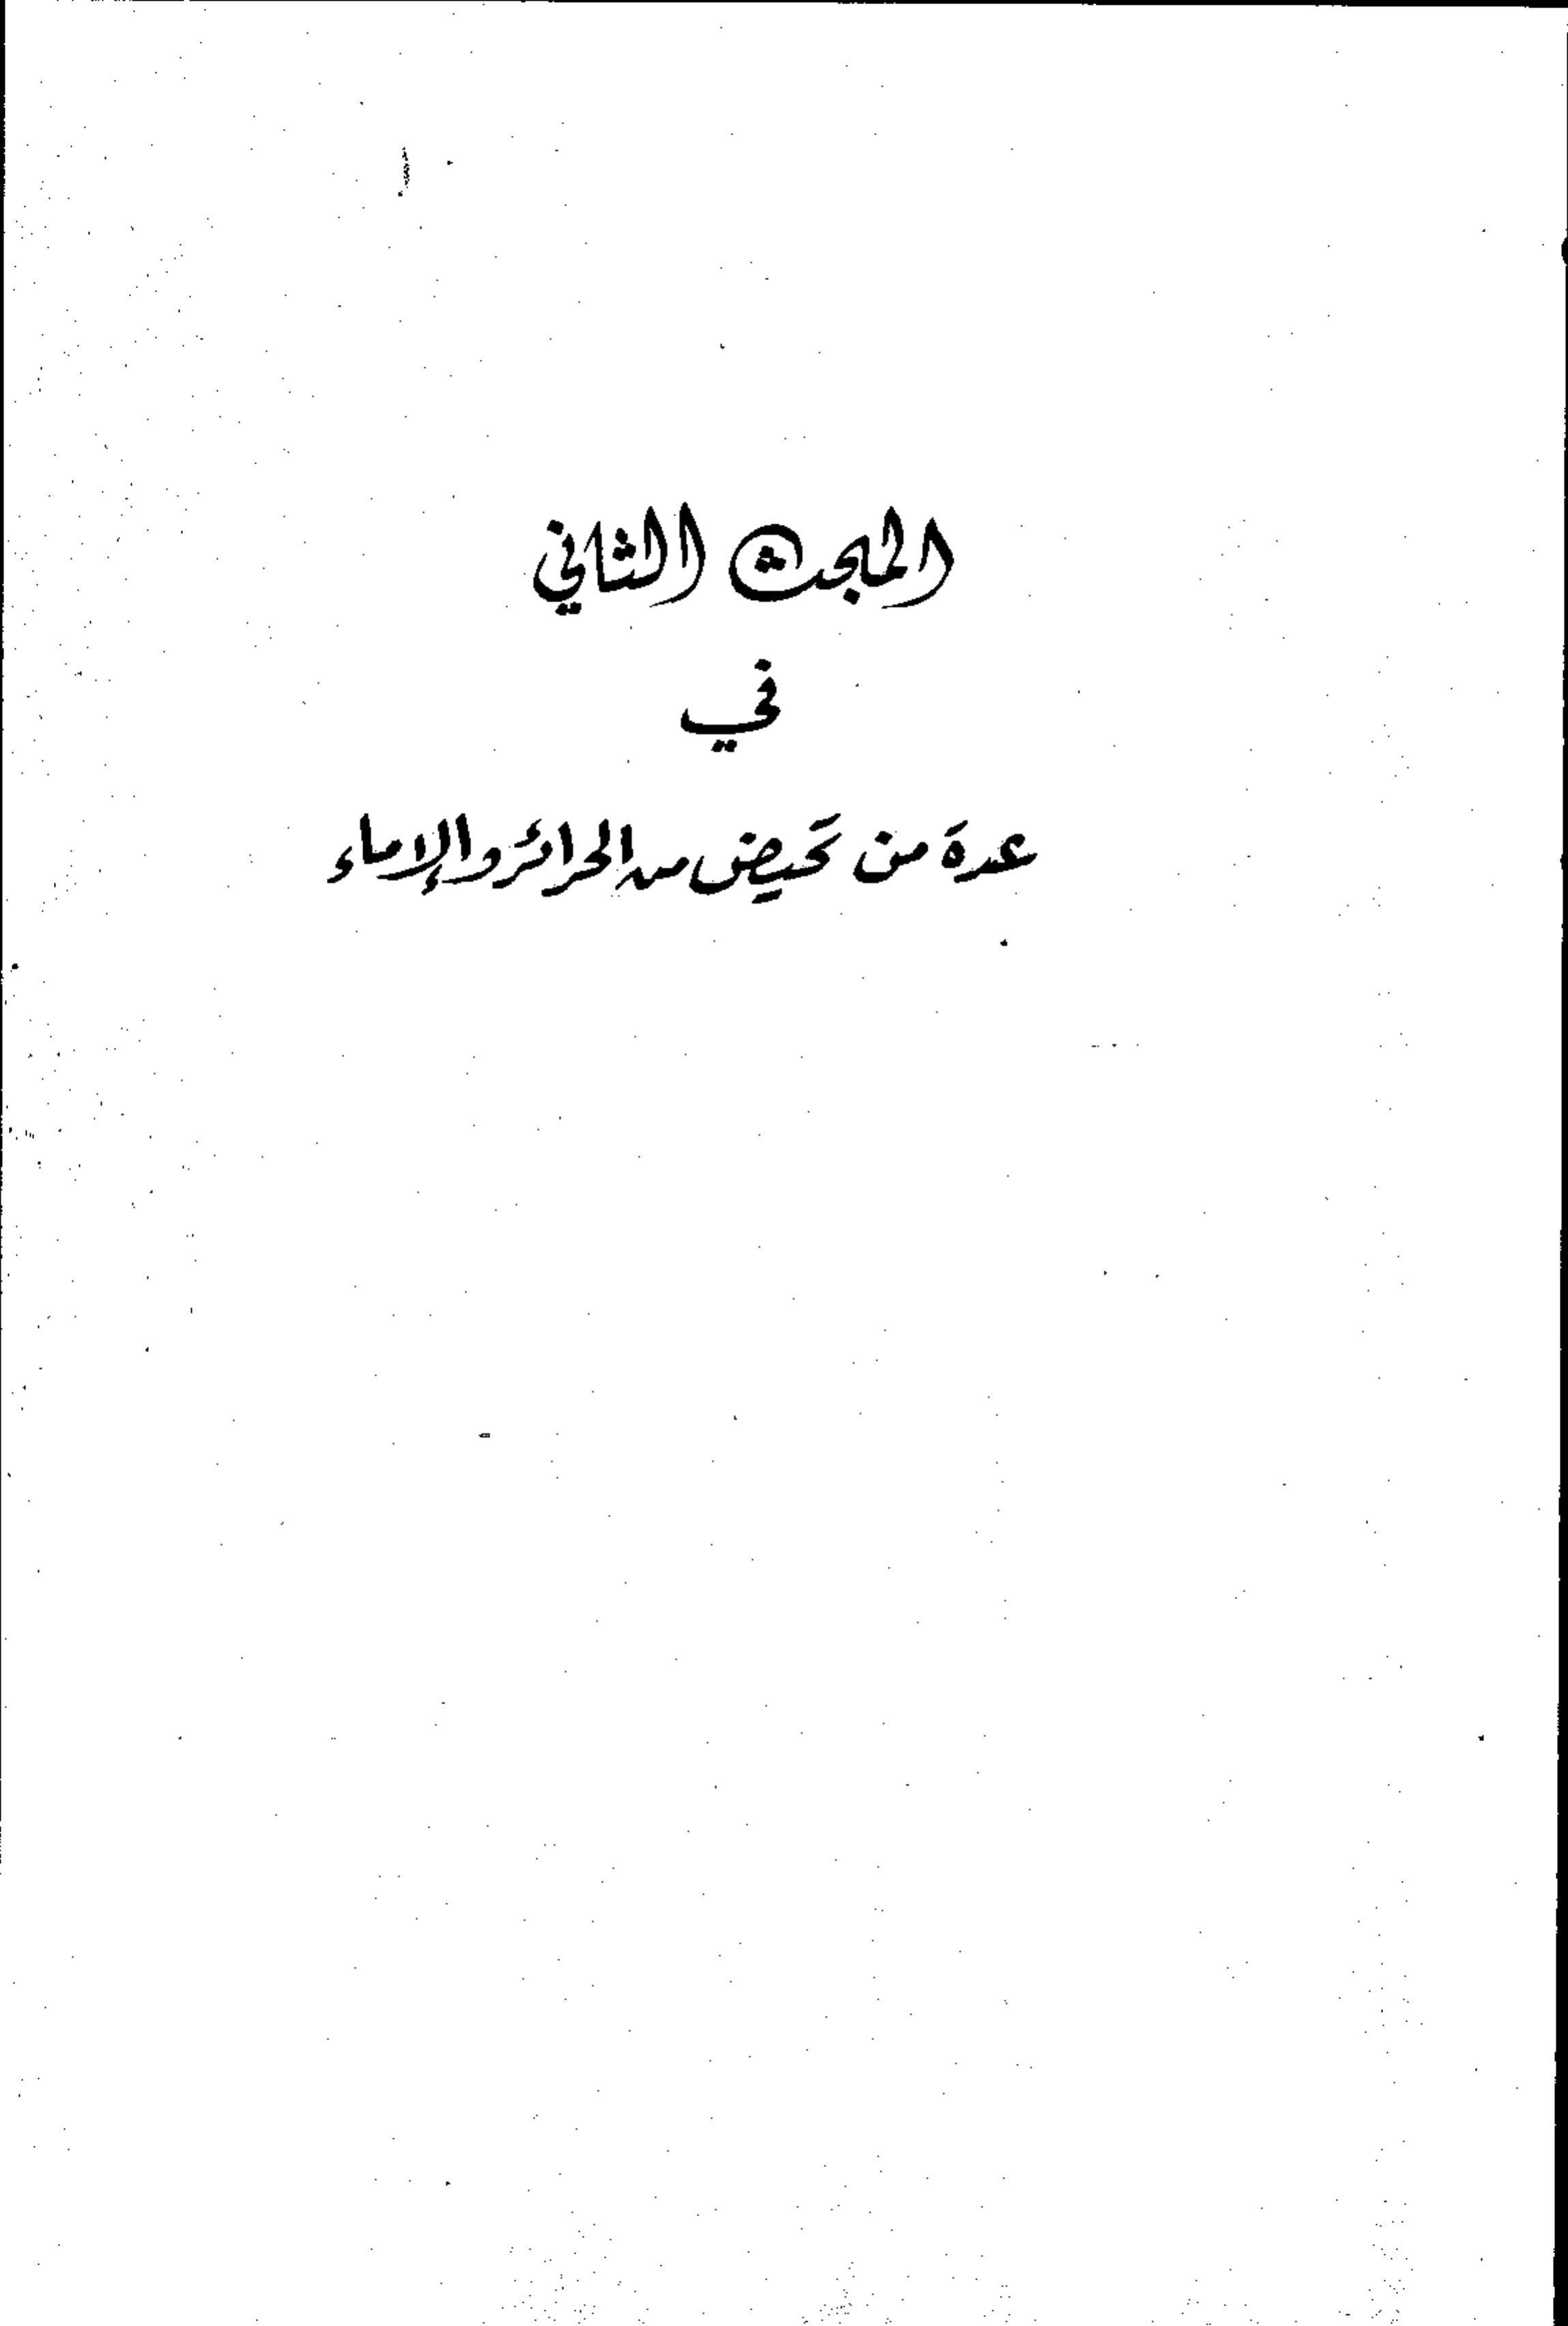 المبحث الثاني
في
عدة من تحيض من الحرائر والإماء